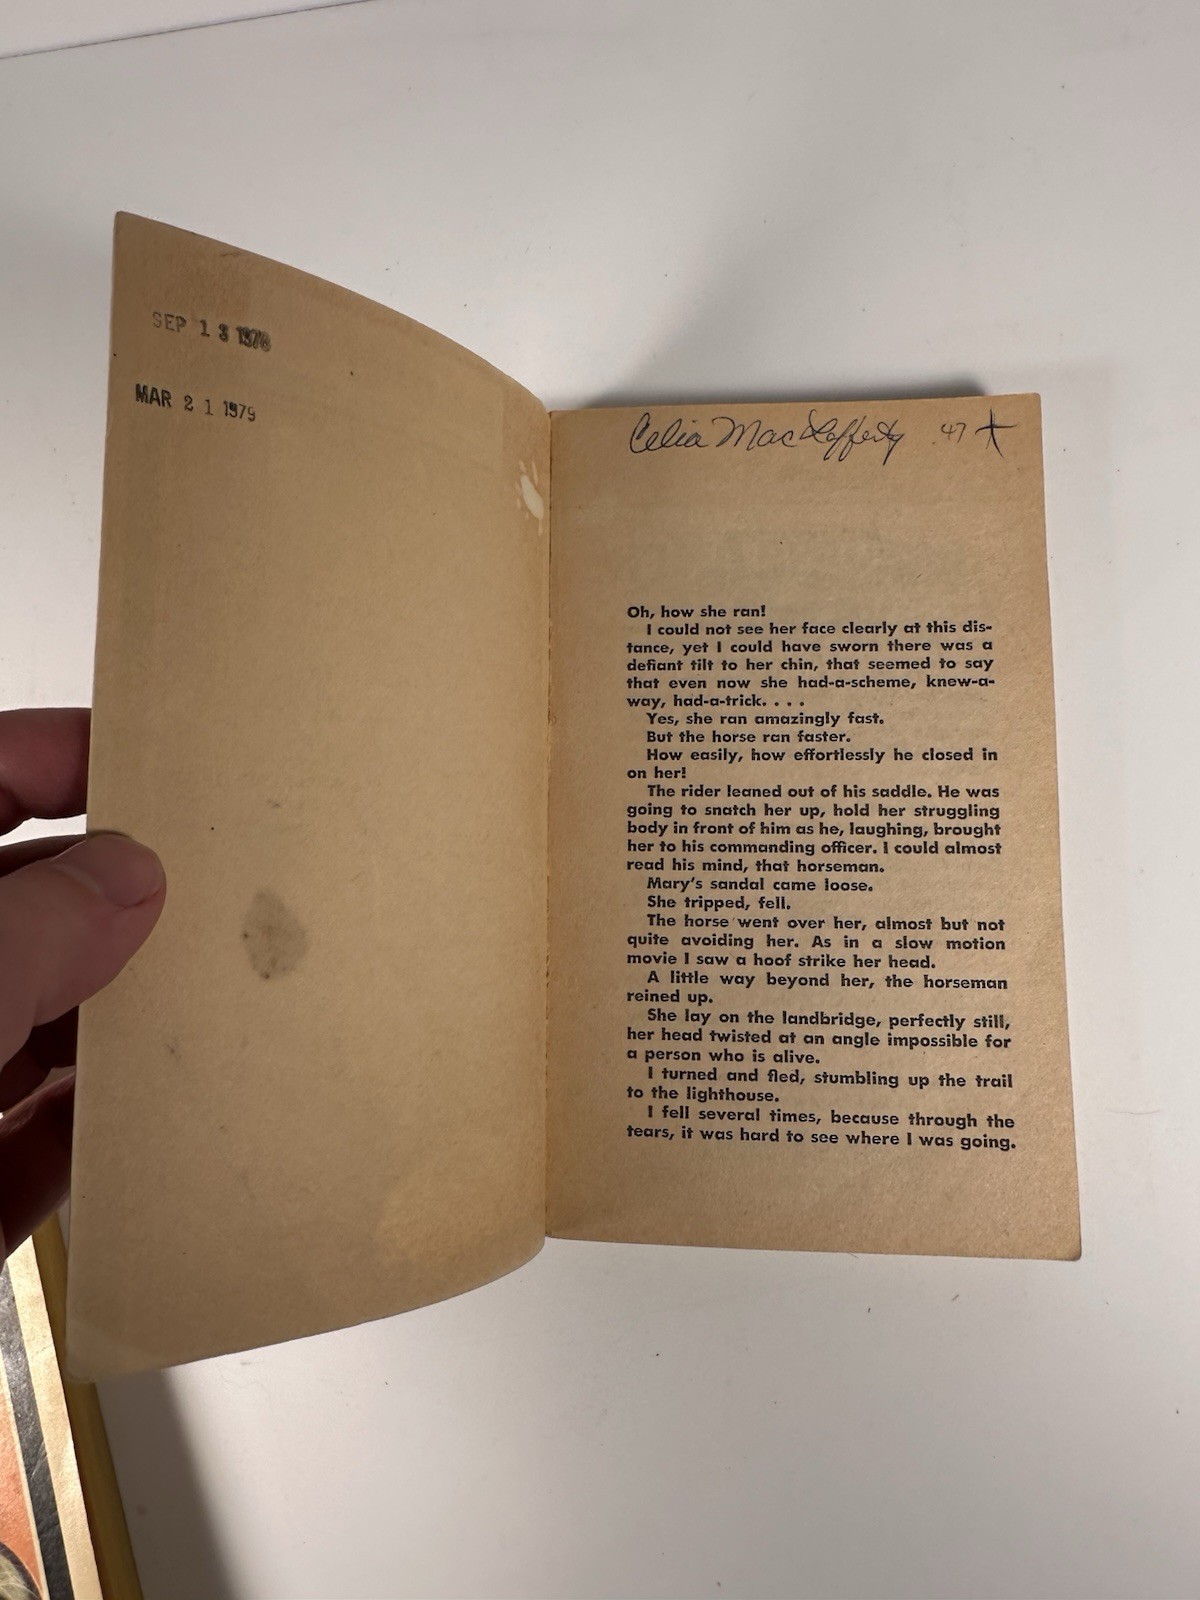 SEP 13 1978
MAR 21 1979
Celia Mac Lafferty .47
Oh, how she ran!
I could not see her face clearly at this dis-
tance, yet I could have sworn there was a
defiant tilt to her chin, that seemed to say
that even now she had-a-scheme, knew-a-
way, had-a-trick. . . .
Yes, she ran amazingly fast.
But the horse ran faster.
How easily, how effortlessly he closed in
on her!
The rider leaned out of his saddle. He was
going to snatch her up, hold her struggling
body in front of him as he, laughing, brought
her to his commanding officer. I could almost
read his mind, that horseman.
Mary's sandal came loose.
She tripped, fell.
The horse went over her, almost but not
quite avoiding her. As in a slow motion
movie I saw a hoof strike her head.
A little way beyond her, the horseman
reined up.
She lay on the landbridge, perfectly still,
her head twisted at an angle impossible for
a person who is alive.
I turned and fled, stumbling up the trail
to the lighthouse.
I fell several times, because through the
tears, it was hard to see where I was going.